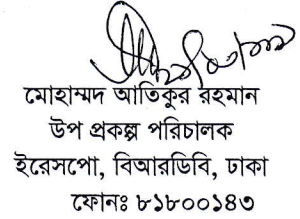 মোহাম্মদ আতিকুর রহমান
উপ প্রকল্প পরিচালক
ইরেসপো, বিআরডিবি, ঢাকা
ফোনঃ ৮১৮০০১৪৩